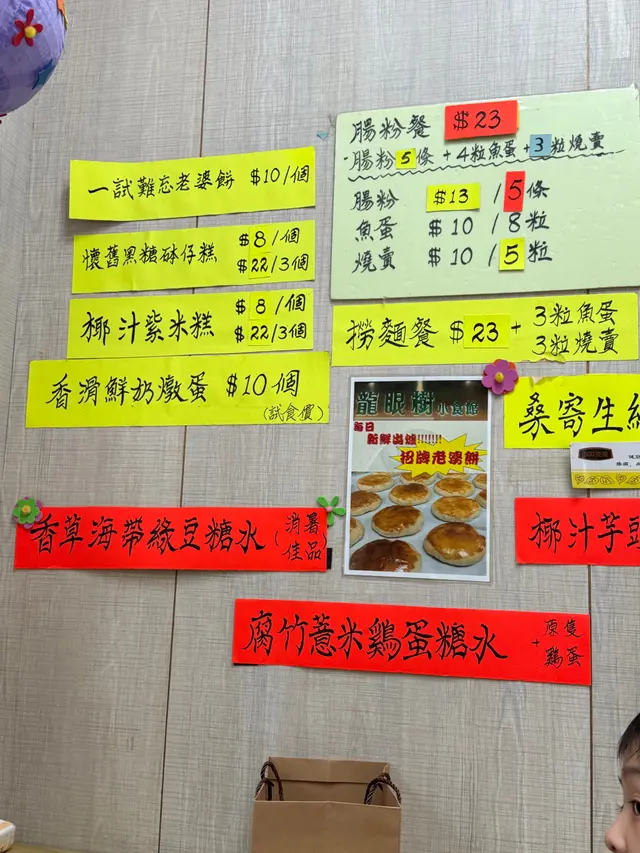 一試難忘老婆餅 $10/個
懷舊黑糖砵仔糕 $8/個
$22/3個
椰汁紫米糕 $8/個
$22/3個
香滑鮮奶燉蛋 $10個
(試食價)
腸粉餐 $23
-腸粉5條+4粒魚蛋+3粒燒賣
腸粉 $13 /5條
魚蛋 $10 /8粒
燒賣 $10 /5粒
撈麵餐 $23 + 3粒魚蛋
3粒燒賣
龍眼樹小食館
每日
新鮮出爐!!!!!!!
招牌老婆餅
桑寄生
香草海帶綠豆糖水 (消暑
佳品)
椰汁芋頭
腐竹薏米鷄蛋糖水 + 原隻
鷄蛋